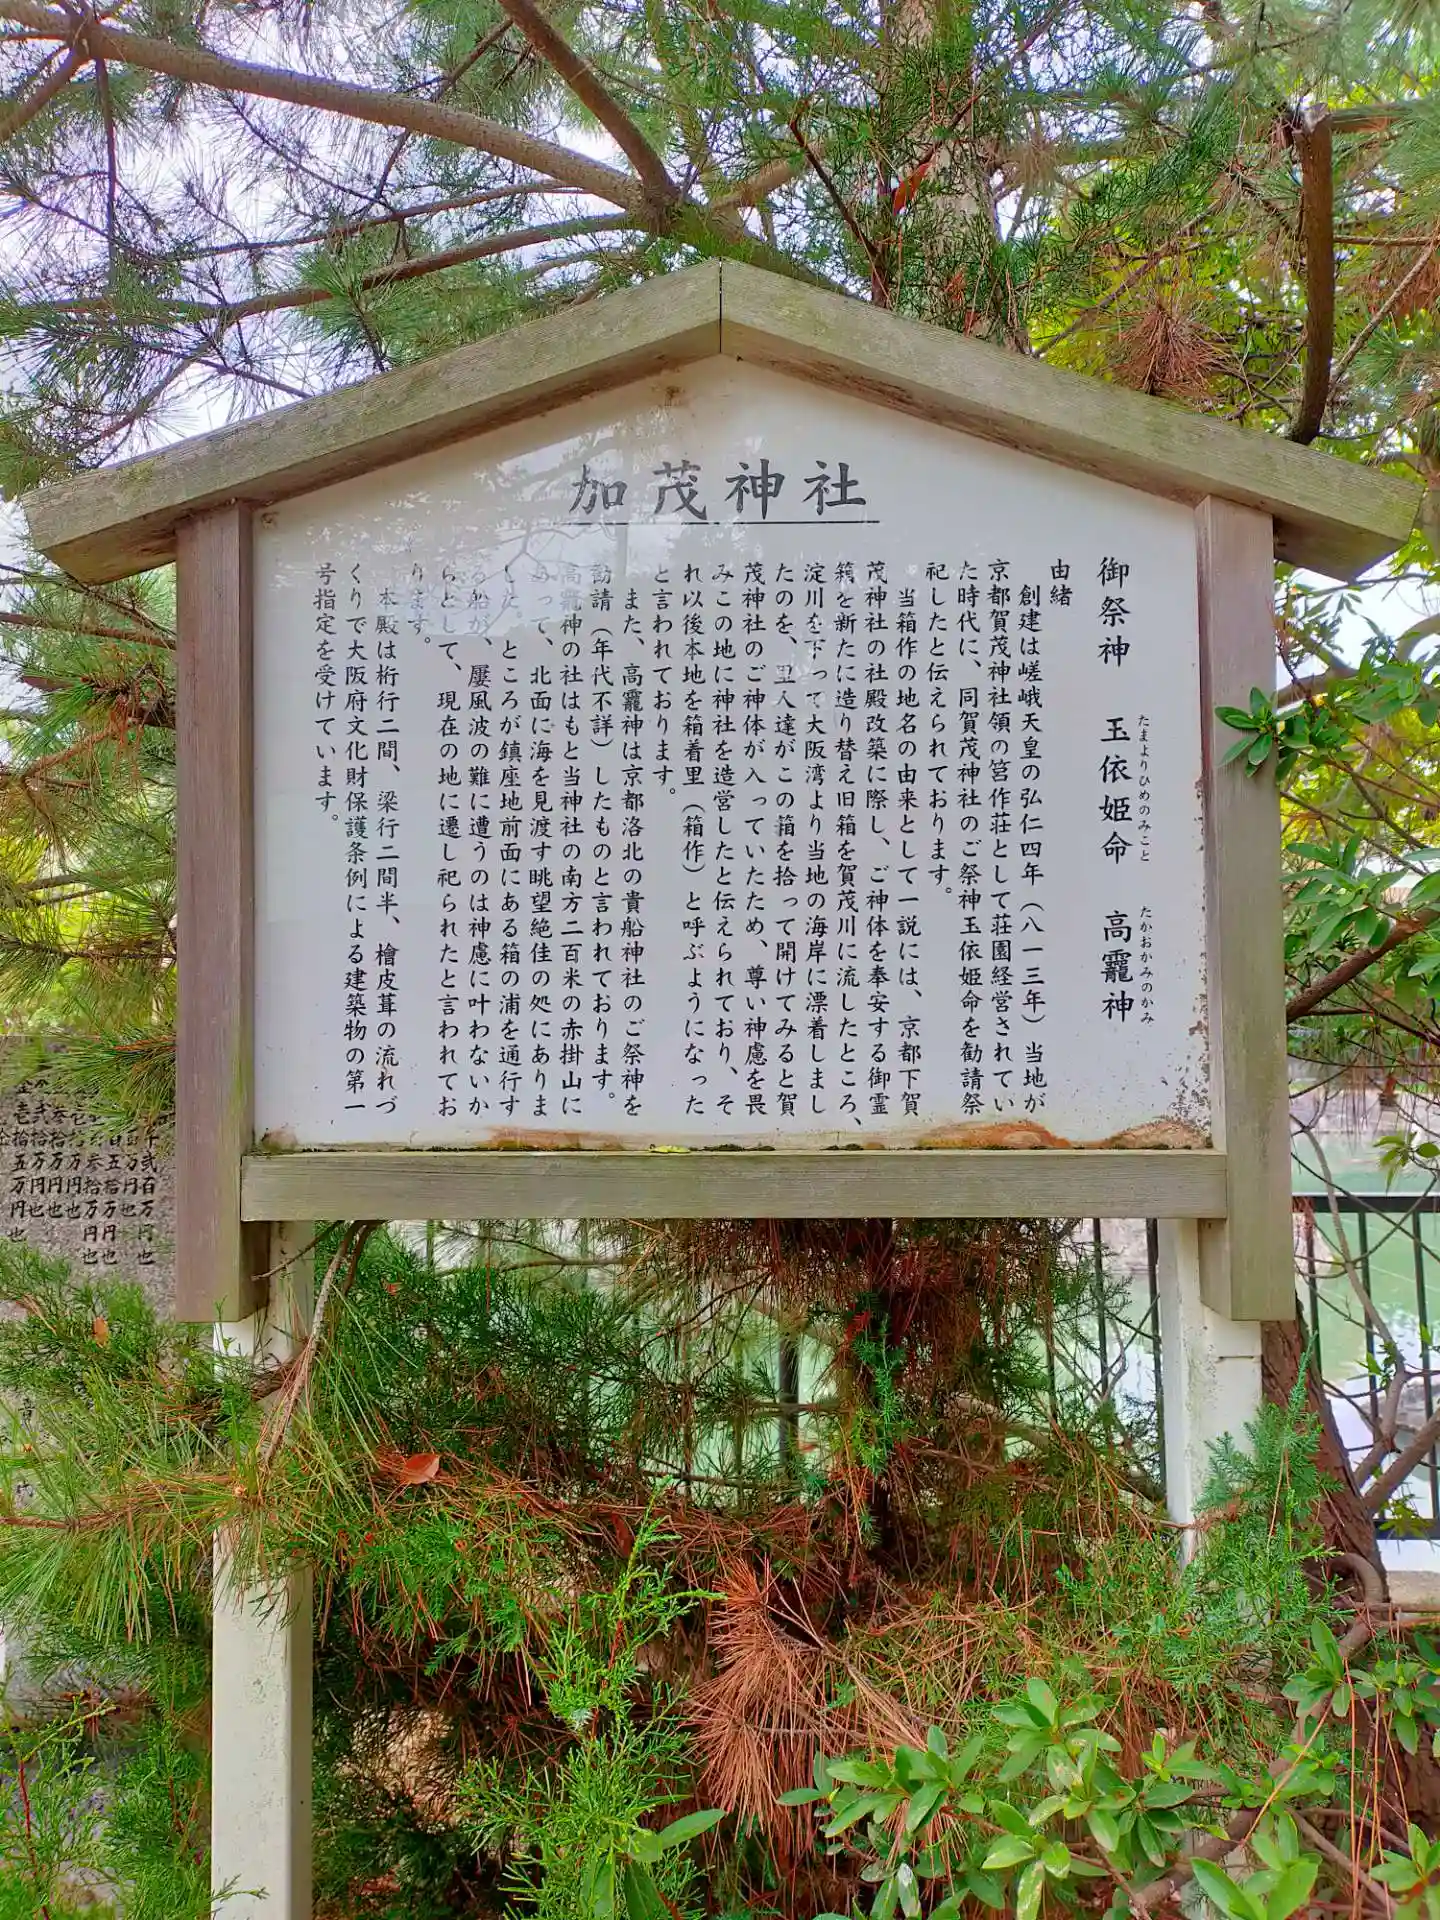 加茂神社
御祭神　玉依姫命　高龗神
たまよりひめのみこと
たかおかみのかみ
由緒
創建は嵯峨天皇の弘仁四年（八一三年）当地が
京都賀茂神社領の筥作荘として荘園経営されてい
た時代に、同賀茂神社のご祭神玉依姫命を勧請祭
祀したと伝えられております。
当箱作の地名の由来として一説には、京都下賀
茂神社の社殿改築に際し、ご神体を奉安する御霊
箱を新たに造り替え旧箱を賀茂川に流したところ、
淀川を下って大阪湾より当地の海岸に漂着しまし
たのを、里人達がこの箱を拾って開けてみると賀
茂神社のご神体が入っていたため、尊い神慮を畏
みこの地に神社を造営したと伝えられており、そ
れ以後本地を箱着里（箱作）と呼ぶようになった
と言われております。
また、高龗神は京都洛北の貴船神社のご祭神を
勧請（年代不詳）したものと言われております。
高龗神の社はもと当神社の南方二百米の赤掛山に
あって、北面に海を見渡す眺望絶佳の処にありま
した。ところが鎮座地前面にある箱の浦を通行す
る船が、屢風波の難に遭うのは神慮に叶わないか
らとして、現在の地に遷し祀られたと言われてお
ります。
本殿は桁行二間、梁行二間半、檜皮葺の流れづ
くりで大阪府文化財保護条例による建築物の第一
号指定を受けています。
弐百万円也
五拾万円也
参拾万円也
拾万円也
弐拾万円也
壱拾五万円也